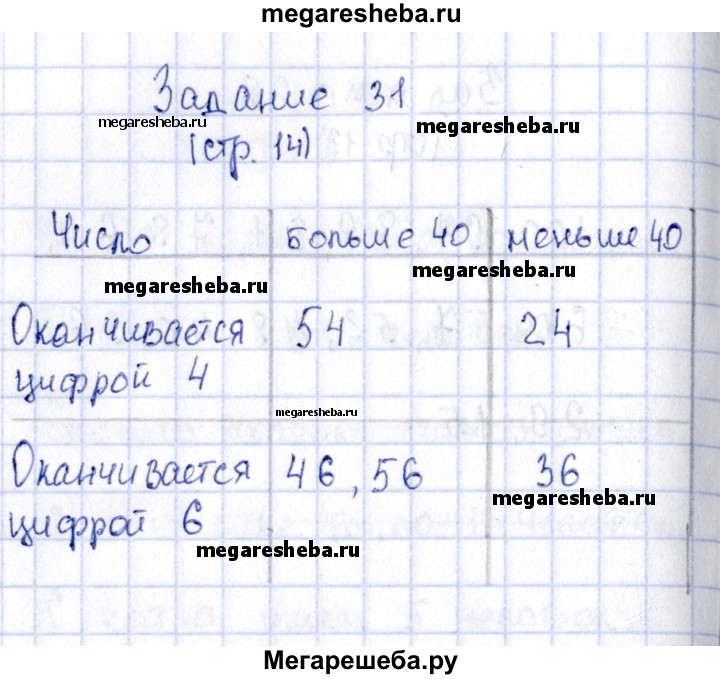 megaresheba.ru
Задание 31
megaresheba.ru
megaresheba.ru
(стр. 14)
Число больше 40 меньше 40
megaresheba.ru
megaresheba.ru
Оканчивается 54 24
цифрой 4
megaresheba.ru
Оканчивается 46, 56 36
megaresheba.ru
цифрой 6
megaresheba.ru
Мегарешеба.ру